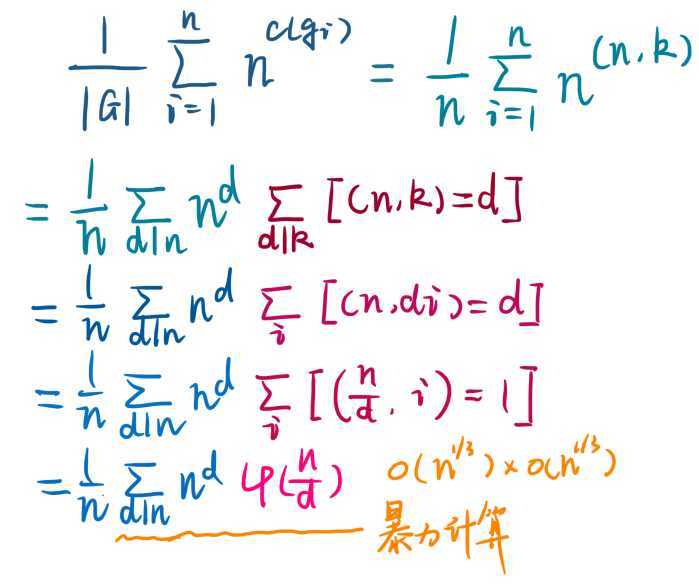 1/|G| ∑_{i=1}^{n} n^{c(gi)} = 1/n ∑_{i=1}^{n} n^{(n,k)}
= 1/n ∑_{d|n} n^d ∑_{d|k} [(n,k)=d]
= 1/n ∑_{d|n} n^d ∑_i [(n,di)=d]
= 1/n ∑_{d|n} n^d ∑_i [(n/d, i)=1]
= 1/n ∑_{d|n} n^d φ(n/d) O(n^{1/3})×O(n^{1/3})
暴力计算